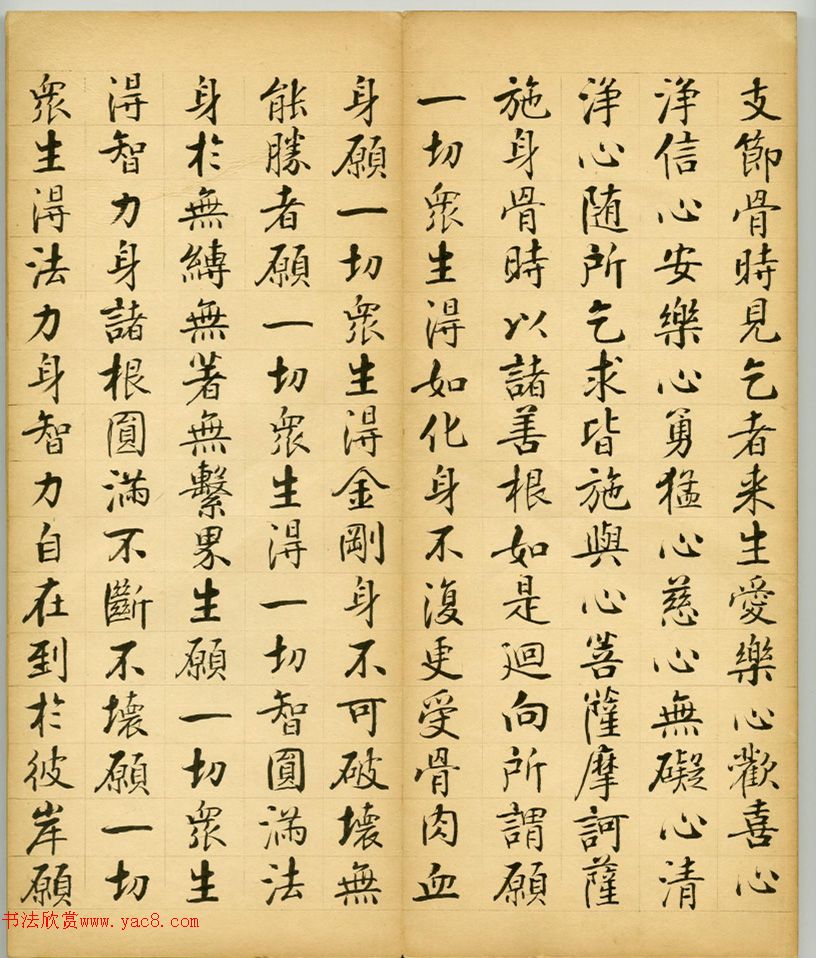 支節骨時見乞者来生愛樂心歡喜心
淨信心安樂心勇猛心慈心無礙心清
淨心随所乞求皆施與心菩薩摩訶薩
施身骨時以諸善根如是迴向所謂願
一切衆生得如化身不復更受骨肉血
身願一切衆生得金剛身不可破壞無
能勝者願一切衆生得一切智圓滿法
身於無縛無著無繫界生願一切衆生
得智力身諸根圓滿不斷不壞願一切
衆生得法力身智力自在到於彼岸願
书法欣赏www.yac8.com